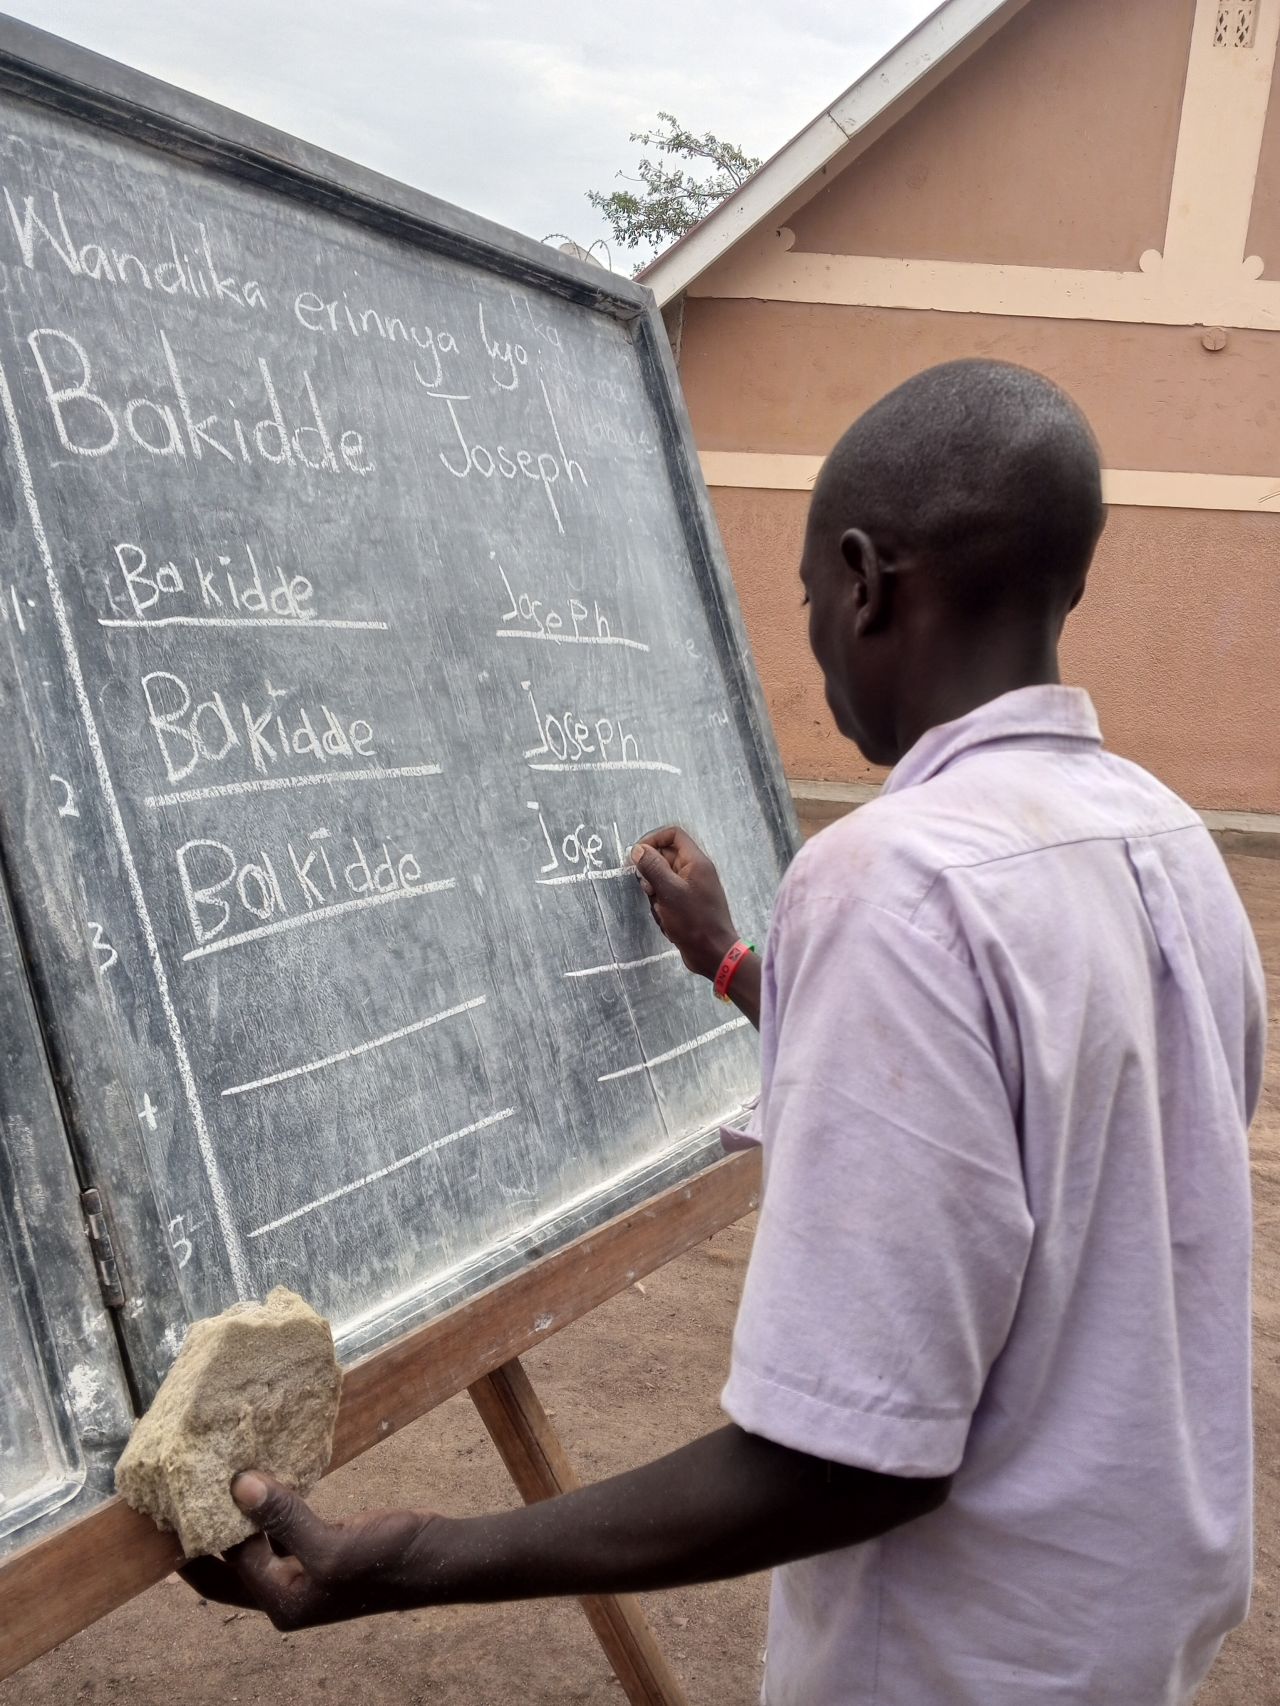 Wandiika erinnya lyo.
Bakidde Joseph
1. Bakidde Joseph
2 Bakidde Joseph
3 Bakidde Joseph
5
ONE